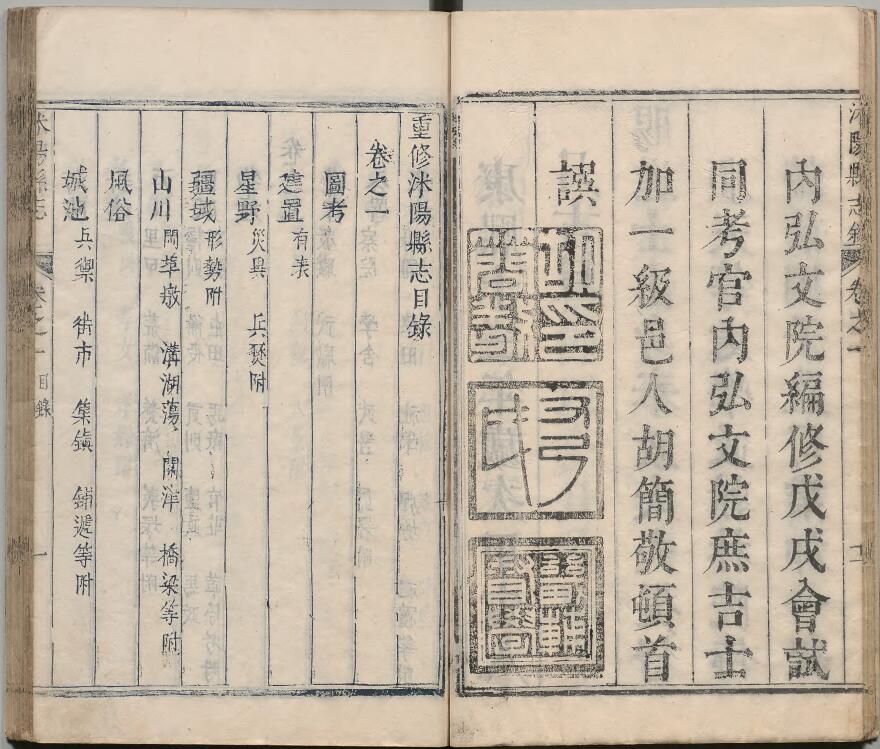 沭陽縣志 卷之一
內弘文院編修戊戌會試
同考官內弘文院庶吉士
加一級邑人胡簡敬頓首
譔
重修沭陽縣志目錄
卷之一
圖考
建置 有表
星野 災異 兵燹附
疆域 形勢附
山川 岡阜墩 溝湖蕩 關洋 橋梁等附
風俗
城池 兵禦 街市 集鎮 鋪遞等附
沭陽縣志 卷之一 目錄 一